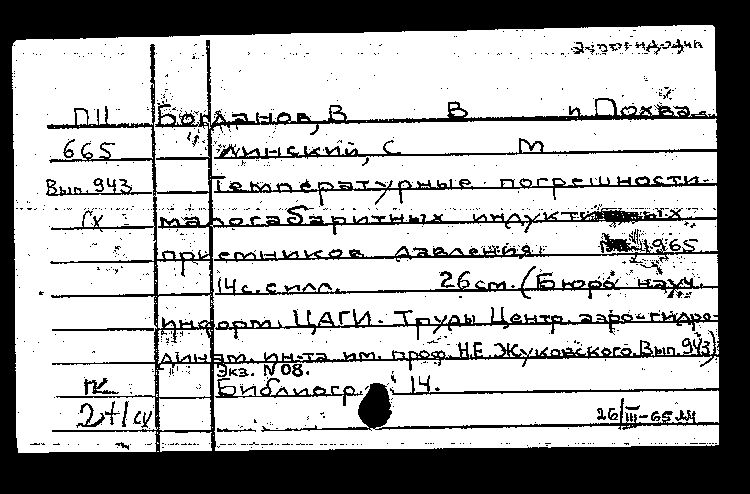 Аэрогидодин
П11 Богданов, В В и Похва-
665 линский, С М
Вып. 943 Температурные погрешности
малогабаритных индуктивных
приемников давления. 1965
14 с. с илл. 26 см. (Бюро науч.
информ. ЦАГИ. Труды Центр. аэро-гидро-
динам. ин-та им. проф. Н.Е. Жуковского. Вып. 943)
Экз. N 08.
Библиогр. : 14.
2+1
26/III-65